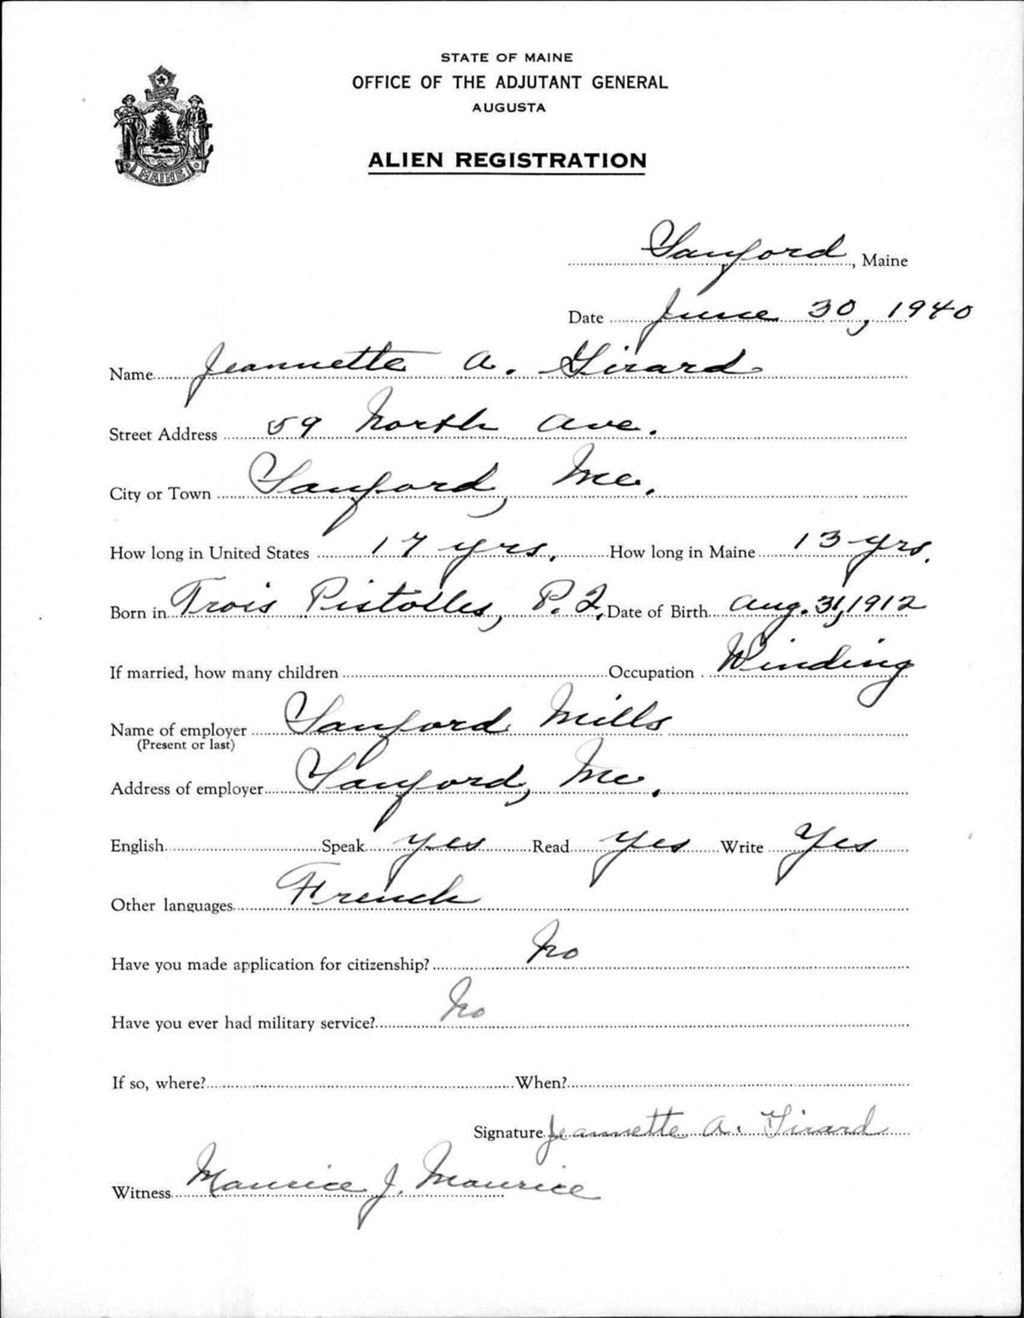 STATE OF MAINE
OFFICE OF THE ADJUTANT GENERAL
AUGUSTA
ALIEN REGISTRATION
MAINE
Sanford, Maine
Date June 30, 1940
Name Jeannette A. Girard
Street Address 59 North Ave.
City or Town Sanford, Me.
How long in United States 17 yrs. How long in Maine 13 yrs.
Born in Trois Pistolles, P.Q. Date of Birth Aug. 31, 1912
If married, how many children Occupation Winding
Name of employer Sanford Mills
(Present or last)
Address of employer Sanford, Me.
English Speak yes Read yes Write Yes
Other languages French
Have you made application for citizenship? No
Have you ever had military service? No
If so, where? When?
Signature Jeannette A. Girard
Witness Maurice J. Maurice